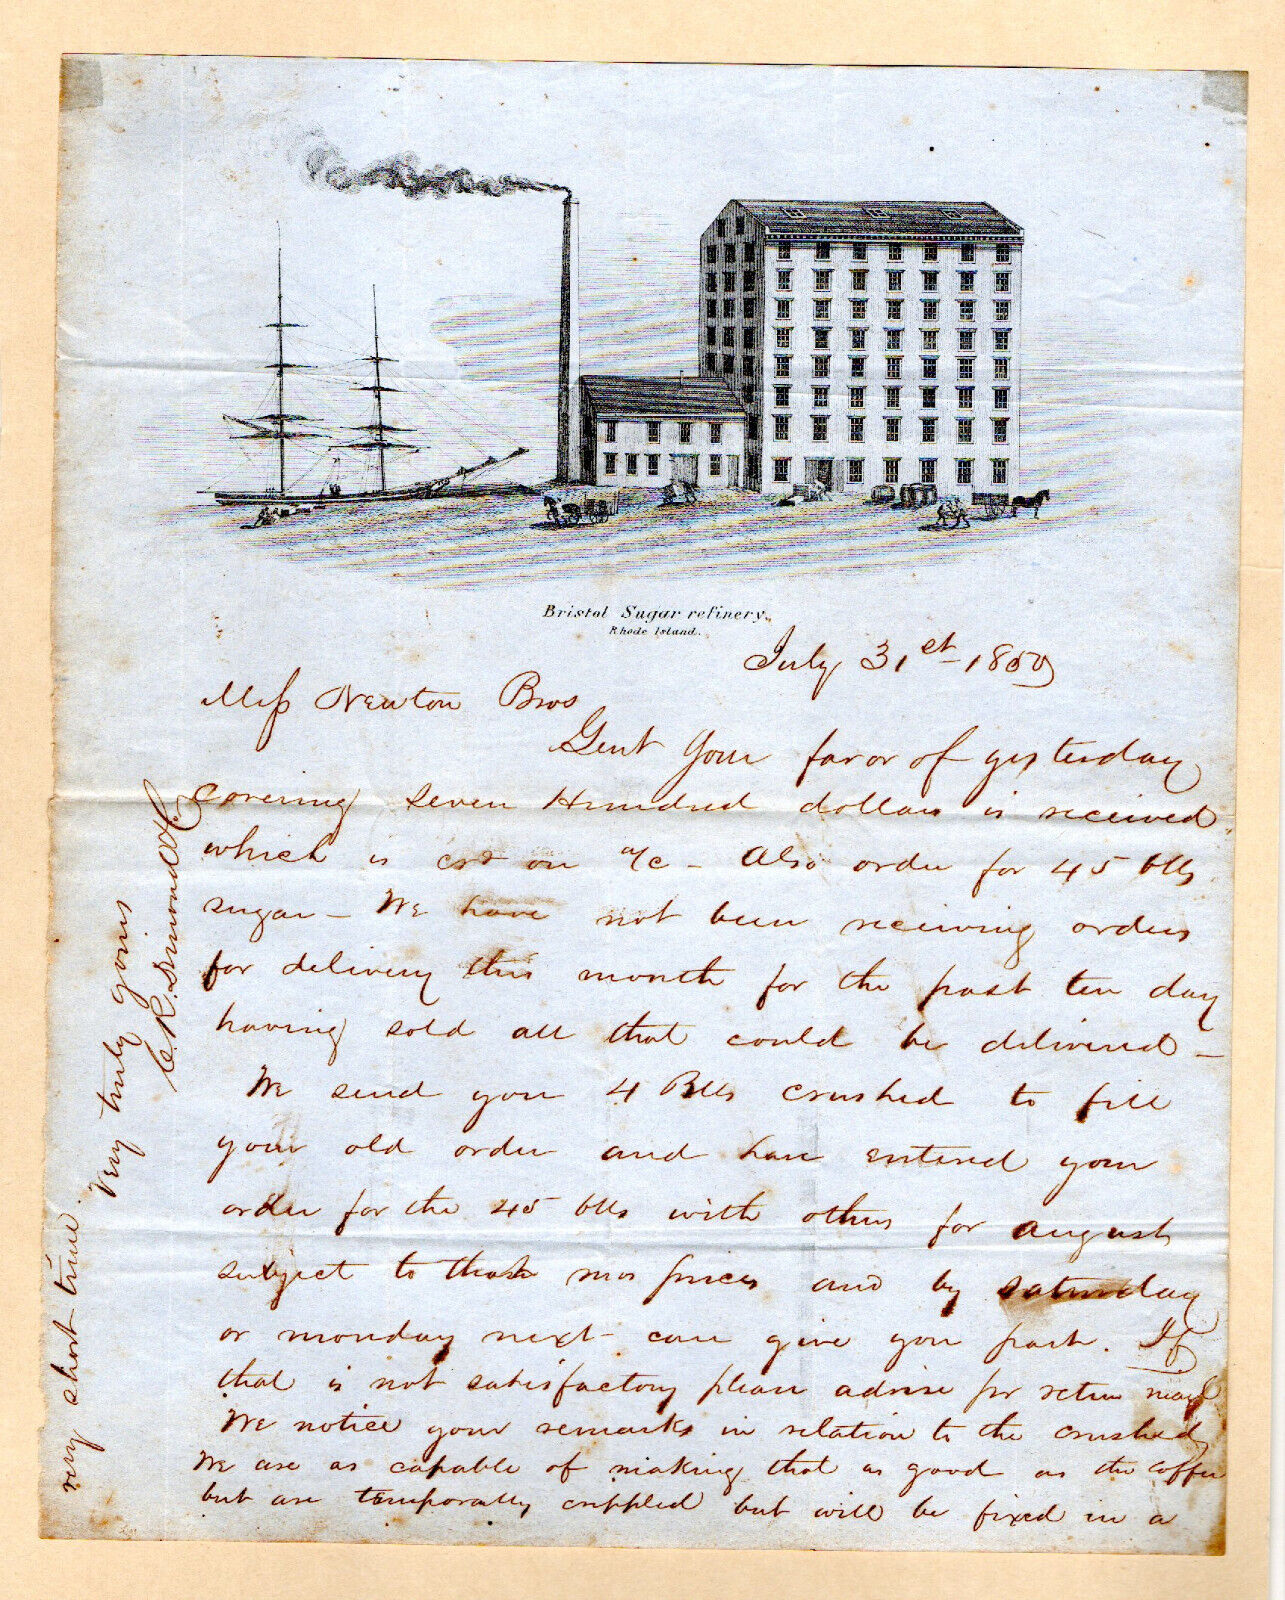 Bristol Sugar refinery.
Rhode Island.
July 31st 1850
Mess Newton Bros
Gent Your favor of yesterday
covering seven Hundred dollars is received
which is crd on a/c - Also order for 45 bbls
sugar - We have not been receiving orders
for delivery this month for the past ten day
having sold all that could be delivered -
We send you 4 Bbls crushed to fill
your old order and have entered your
order for the 45 bbls with others for august
subject to that mos prices and by saturday
or monday next can give you part. If
that is not satisfactory please advise pr retun mail
We notice your remarks in relation to the crushed,
We are as capable of making that as good as the coffee
but are temporally crippled but will be fixed in a
very short time
Very truly yours
C. R.